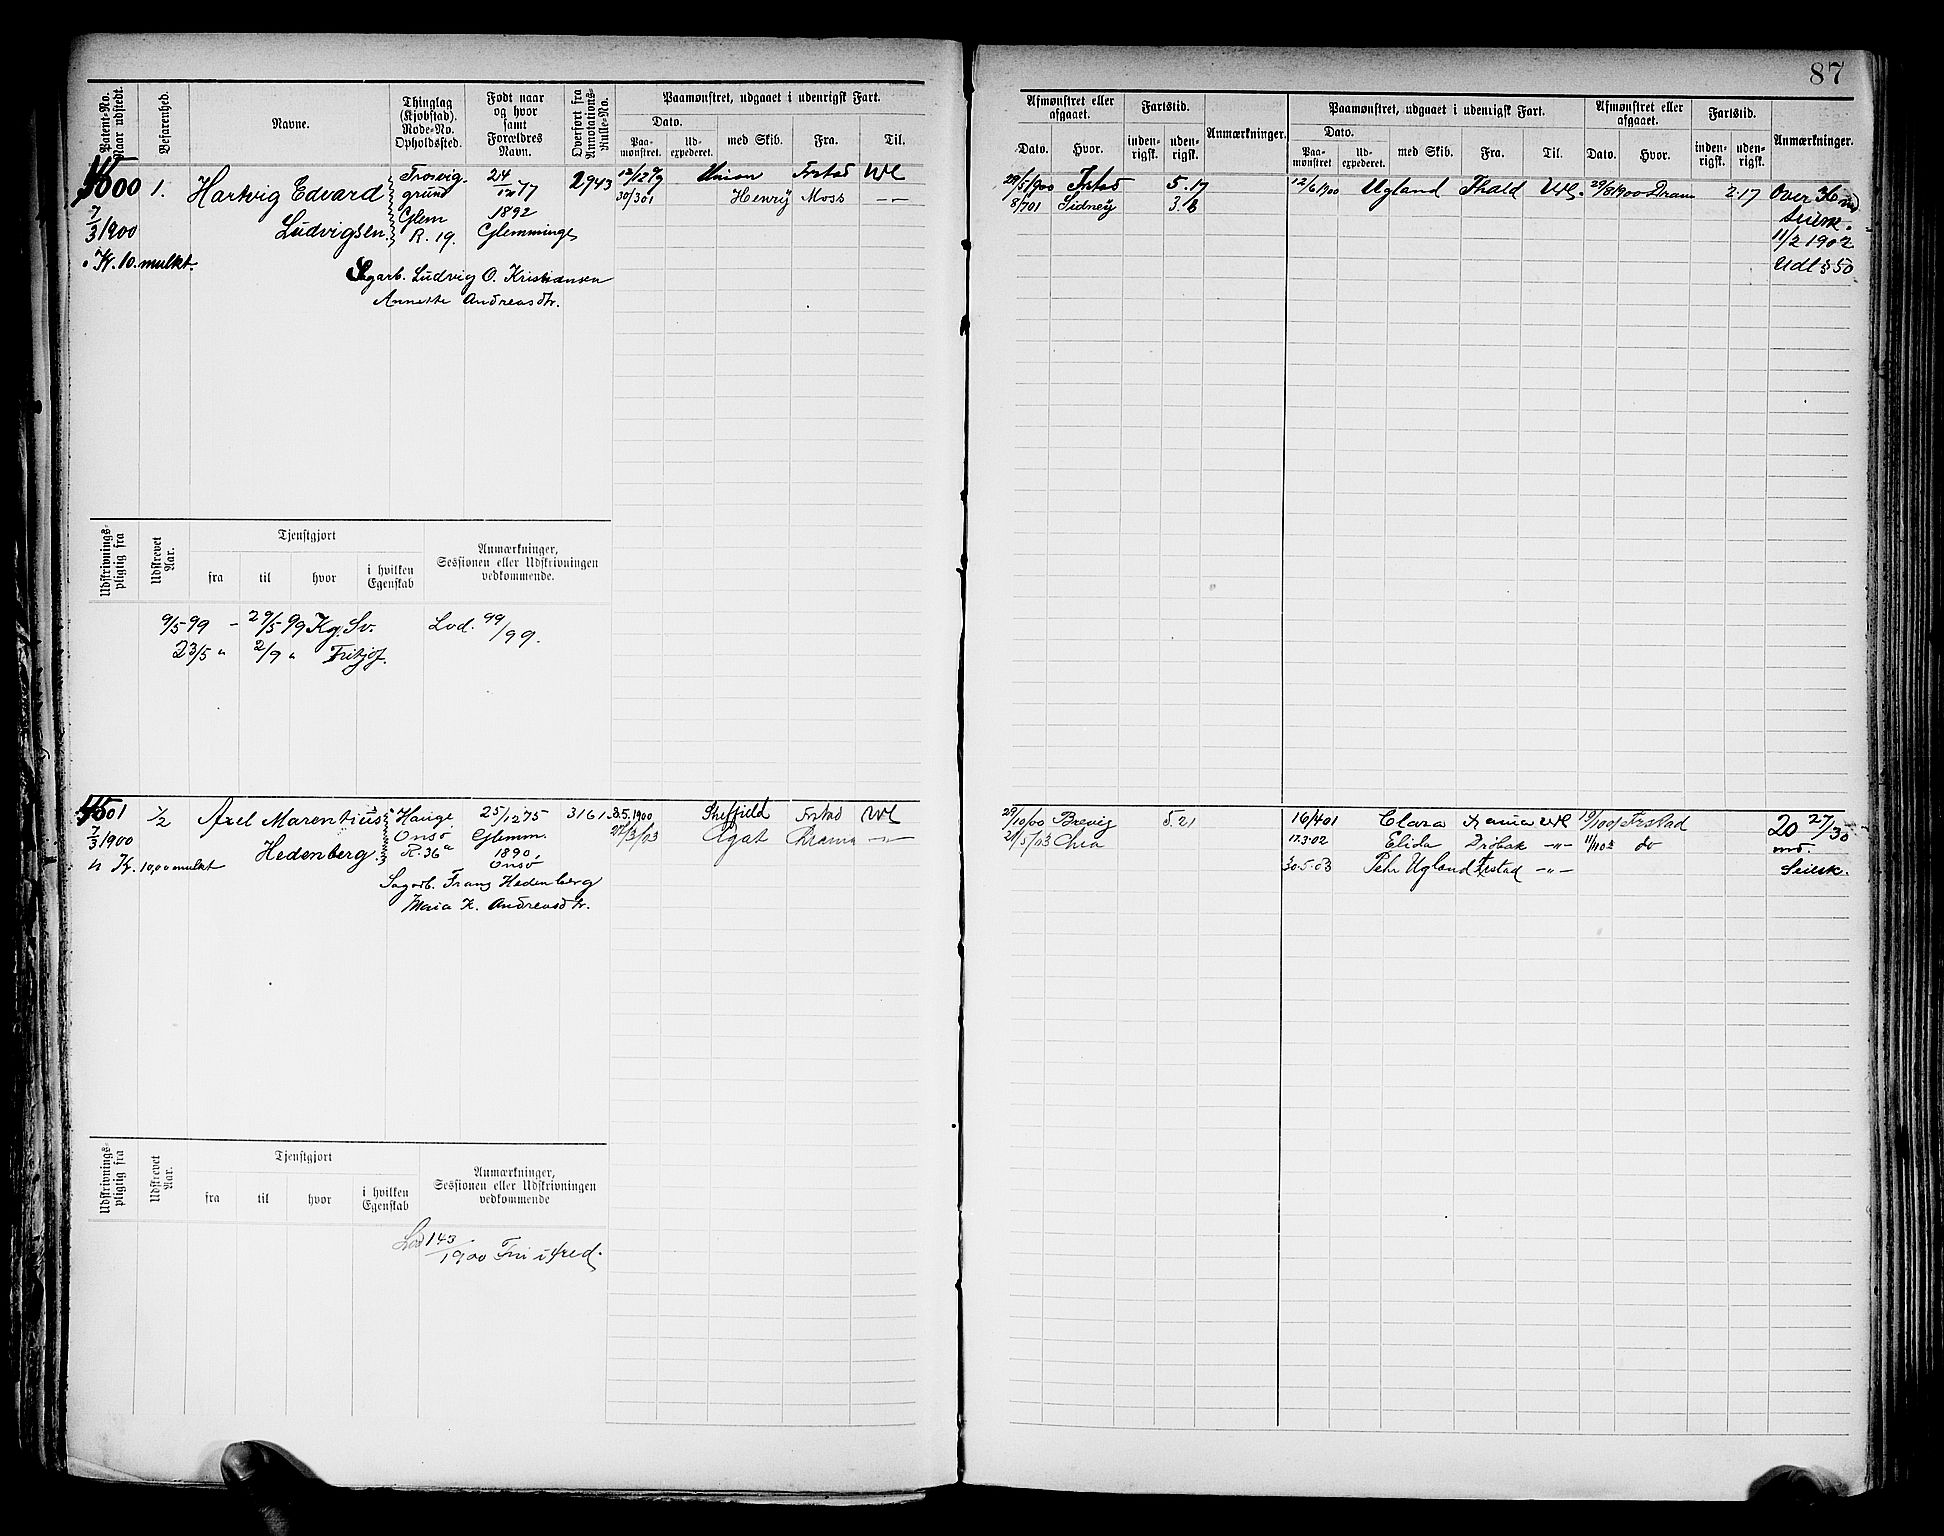 87
Patent-No. Naar udstedt.
Befarenhed.
Navne.
Thinglag (Kjøbstad). Rode-No. Opholdssted.
Født naar og hvor samt Forældres Navn.
Overført fra Annotations-Rulle-No.
Paamønstret, udgaaet i udenrigsk Fart.
Dato.
Paamønstret.
Udexpederet.
med Skib.
Fra.
Til.
Afmønstret eller afgaaet.
Dato.
Hvor.
Fartstid.
indenrigsk.
udenrigsk.
Anmærkninger.
Paamønstret, udgaaet i udenrigsk Fart.
Dato.
Paamønstret.
Udexpederet.
med Skib.
Fra.
Til.
Afmønstret eller afgaaet.
Dato.
Hvor.
Fartstid.
indenrigsk.
udenrigsk.
Anmærkninger.
1.
Hartvig Edvard
Ludvigsen
7/3 1900
Kr. 10. mulkt.
Trosvig-
grund
Glem
R. 19.
24/12 77
1892
Glemminge
Sagarb. Ludvig O. Kristiansen
Annette Andreasdtr.
2943
Union Frstad Wl
30/3 01 Henry Moss -"-
29/5 1900 Frstad 5.17
8/7 01 Sidney
12/6 1900 Ugland Thald Utl. 29/8 1900 Dram 2.17
Over 36 md
Seilsk.
11/2 1902
Udl § 50
Udskrivningspligtig fra
Udskrevet Aar.
Tjenstgjort
fra
til
hvor
i hvilken Egenskab
Anmærkninger, Sessionen eller Udskrivningen vedkommende.
9/5 99 - 29/5 99 Kg. Sv. Lod. 99/99.
23/5 " 2/9 " Fritjof.
1/2
Axel Marentius
Hedenberg.
7/3 1900
Kr. 10,00 mulkt
Hauge
Onsø
R. 36a
25/12 75
Glemm.
1890,
Onsø
Sagarb. Franz Hedenberg
Maia K. Andreasdtr.
3161
3.5.1900 Sheffield Frstad Wl
27/3/03 Agat Drammn -"-
29/10/00 Brevig 5.21
21/5/03
16/4 01 Clara 19/10 01 Frstad
17.3.02 Elida Drøbak -"- do
30.5.03 Pehr Ugland Frstad -"-
20 27/30
md.
Seilsk.
Udskrivningspligtig fra
Udskrevet Aar.
Tjenstgjort
fra
til
hvor
i hvilken Egenskab
Anmærkninger, Sessionen eller Udskrivningen vedkommende
Lod 143/1900 Fri i fred.